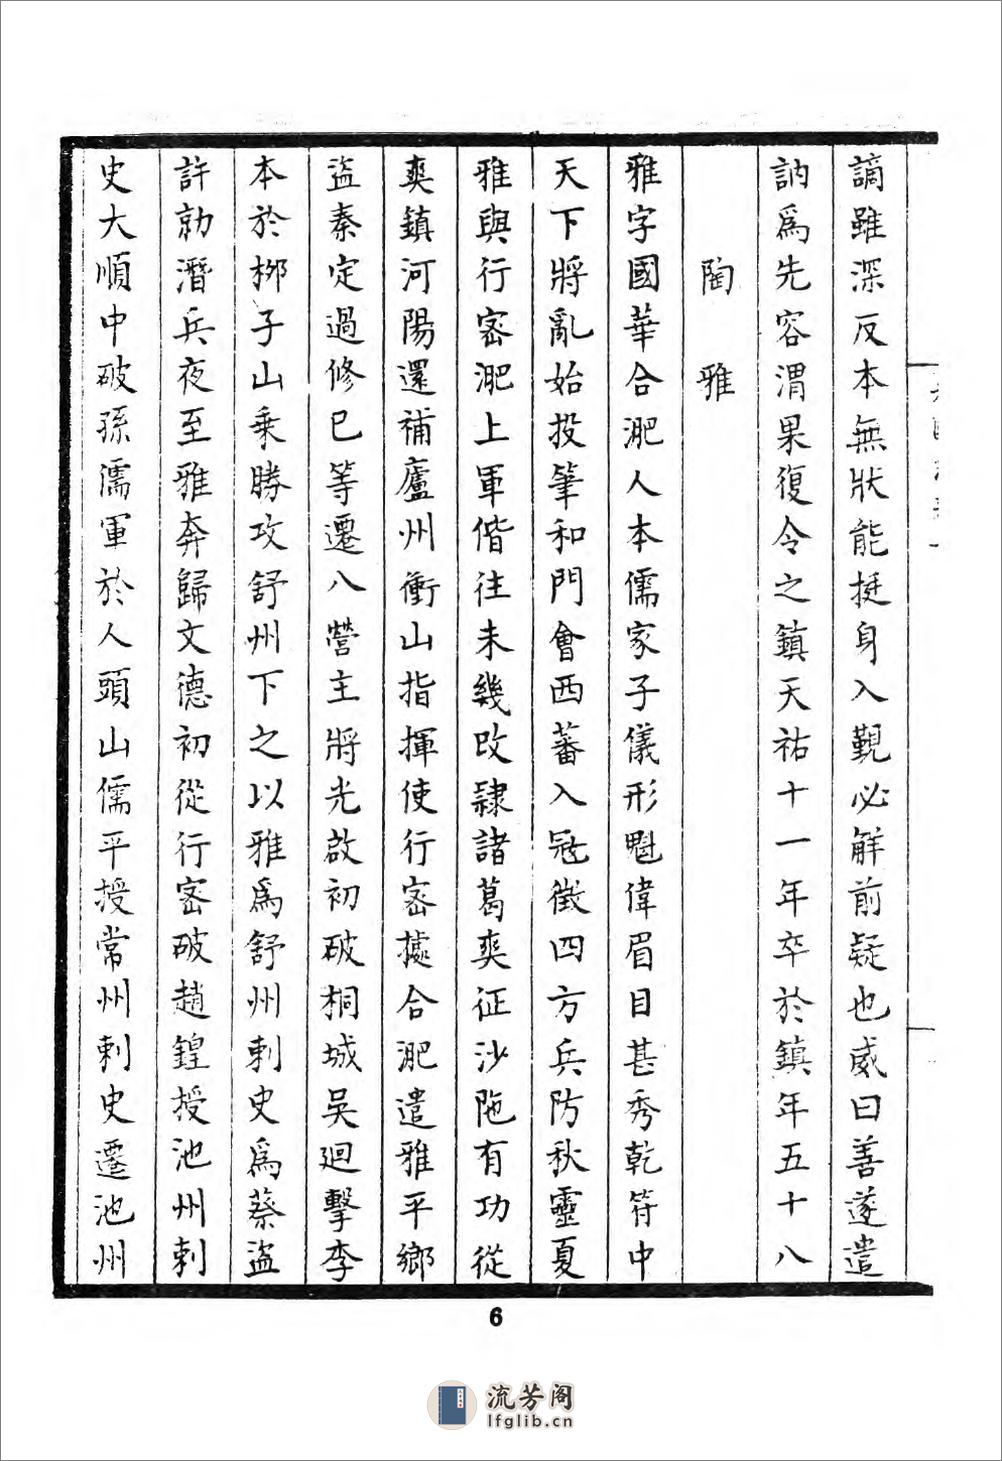 謫雖深反本無狀能挺身入覲必解前疑也威曰善遂遣
訥爲先容渭果復令之鎮天祐十一年卒於鎮年五十八
陶雅
雅字國華合淝人本儒家子儀形魁偉眉目甚秀乾符中
天下將亂始投筆和門會西蕃入寇徵四方兵防秋靈夏
雅與行密淝上軍偕往未幾改隷諸葛爽征沙陁有功從
爽鎮河陽還補廬州衝山指揮使行密據合淝遣雅平鄉
盜秦定過修巳等遷八營主將光啟初破桐城吴迴擊李
本於栁子山乗勝攻舒州下之以雅爲舒州刺史爲蔡盜
許勍潛兵夜至雅奔歸文德初從行密破趙鍠授池州刺
史大順中破孫儒軍於人頭山儒平授常州刺史遷池州
6
流芳阁
lfglib.cn